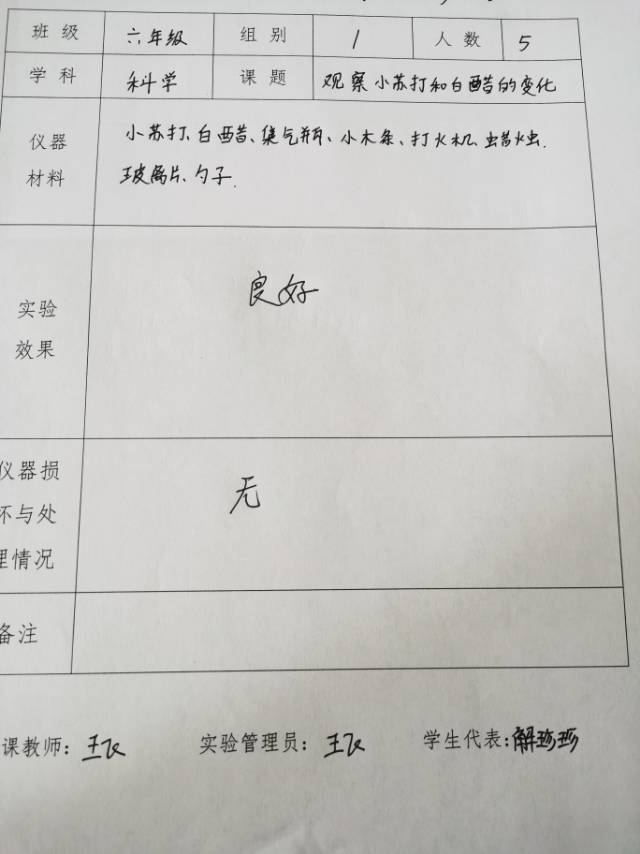 班级 六年级 组别 1 人数 5
学科 科学 课题 观察小苏打和白醋的变化
仪器 小苏打、白醋、集气瓶、小木条、打火机、蜡烛.
材料 玻离片、勺子.
实验 良好
效果
仪器损 无
坏与处
理情况
备注
课教师: 王飞 实验管理员: 王飞 学生代表: 解珍珍